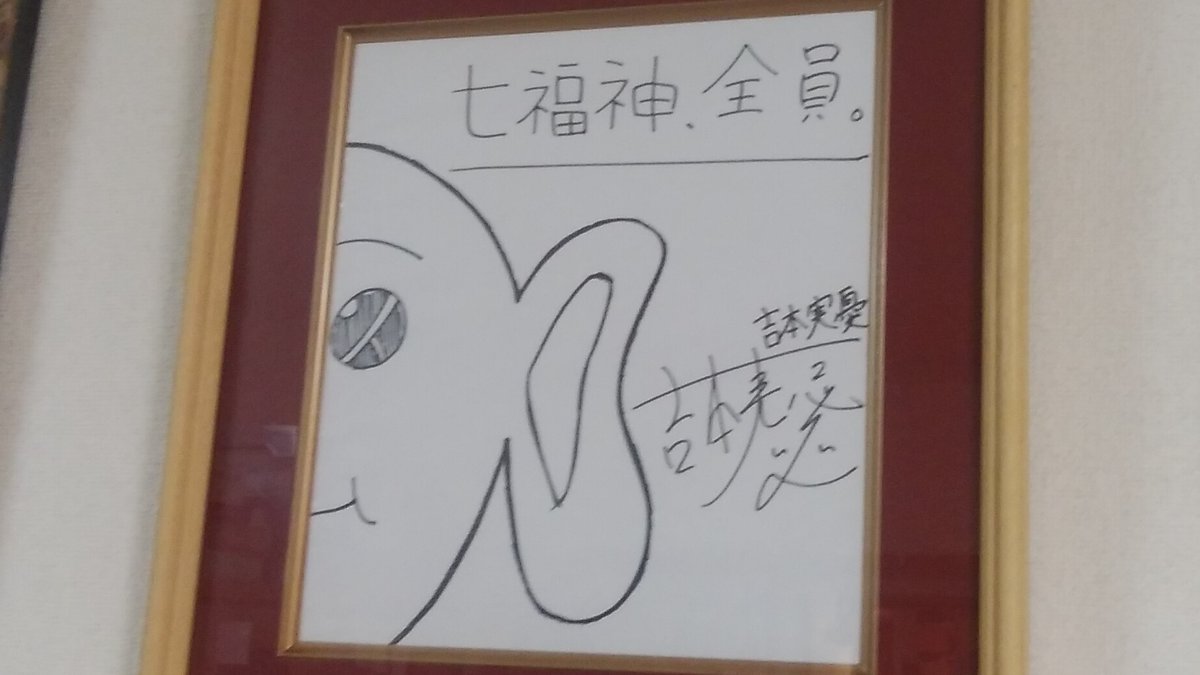 七福神、全員。
吉本実憂
吉本実憂